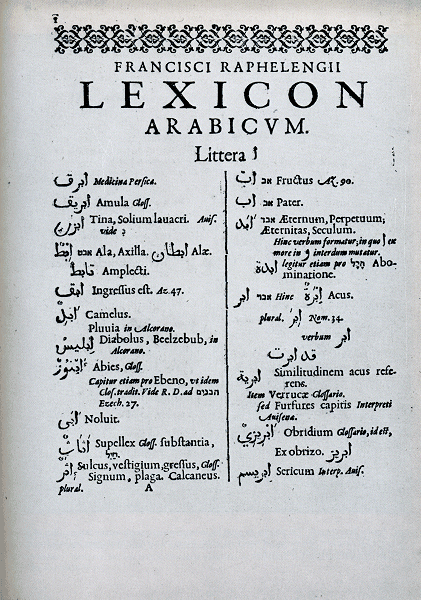 FRANCISCI RAPHELENGII
LEXICON
ARABICVM.
Littera ا
ابّ אב Fructus Az. 90.
اب אב Pater.
ابد Æternum, Perpetuum;
Æternitas, Seculum.
Hinc verbum formatur; in quo ا ex
more in و interdum mutatur.
ابدة legitur etiam pro Abo-
minatione.
ابر אבר Hinc ابرة Acus.
plural. ابر Nom. 34.
verbum ابر
قد ابرت
ابرية Similitudinem acus refe-
rens.
Item Verrucæ Glossario.
sed Furfures capitis Interpreti
Avisenæ.
ابريزي Obridium Glossario, id est,
Ex obrizo. ابريز
ابريسم Sericum Interp. Avis.
ابرق Medicina Persica.
ابريق Amula Gloss.
ابزن Tina, Solium lavacri. Avis.
vide
ابط Ala, Axilla. ابطان Alæ.
تابط Amplecti.
ابق Ingressus est. Az. 47.
ابل Camelus.
Pluuia in Alcorano.
ابليس Diabolus, Beelzebub, in
Alcorano.
ابنوز Abies, Gloss.
Capitur etiam pro Ebeno, vt idem
Glos. tradit. Vide R. D. ad הבנים
Ezech. 27.
ابى Noluit.
اثاث Supellex Gloss. substantia,
اثر Sulcus, vestigium, gressus, Gloss.
Signum, plaga. Calcaneus.
plural.
A